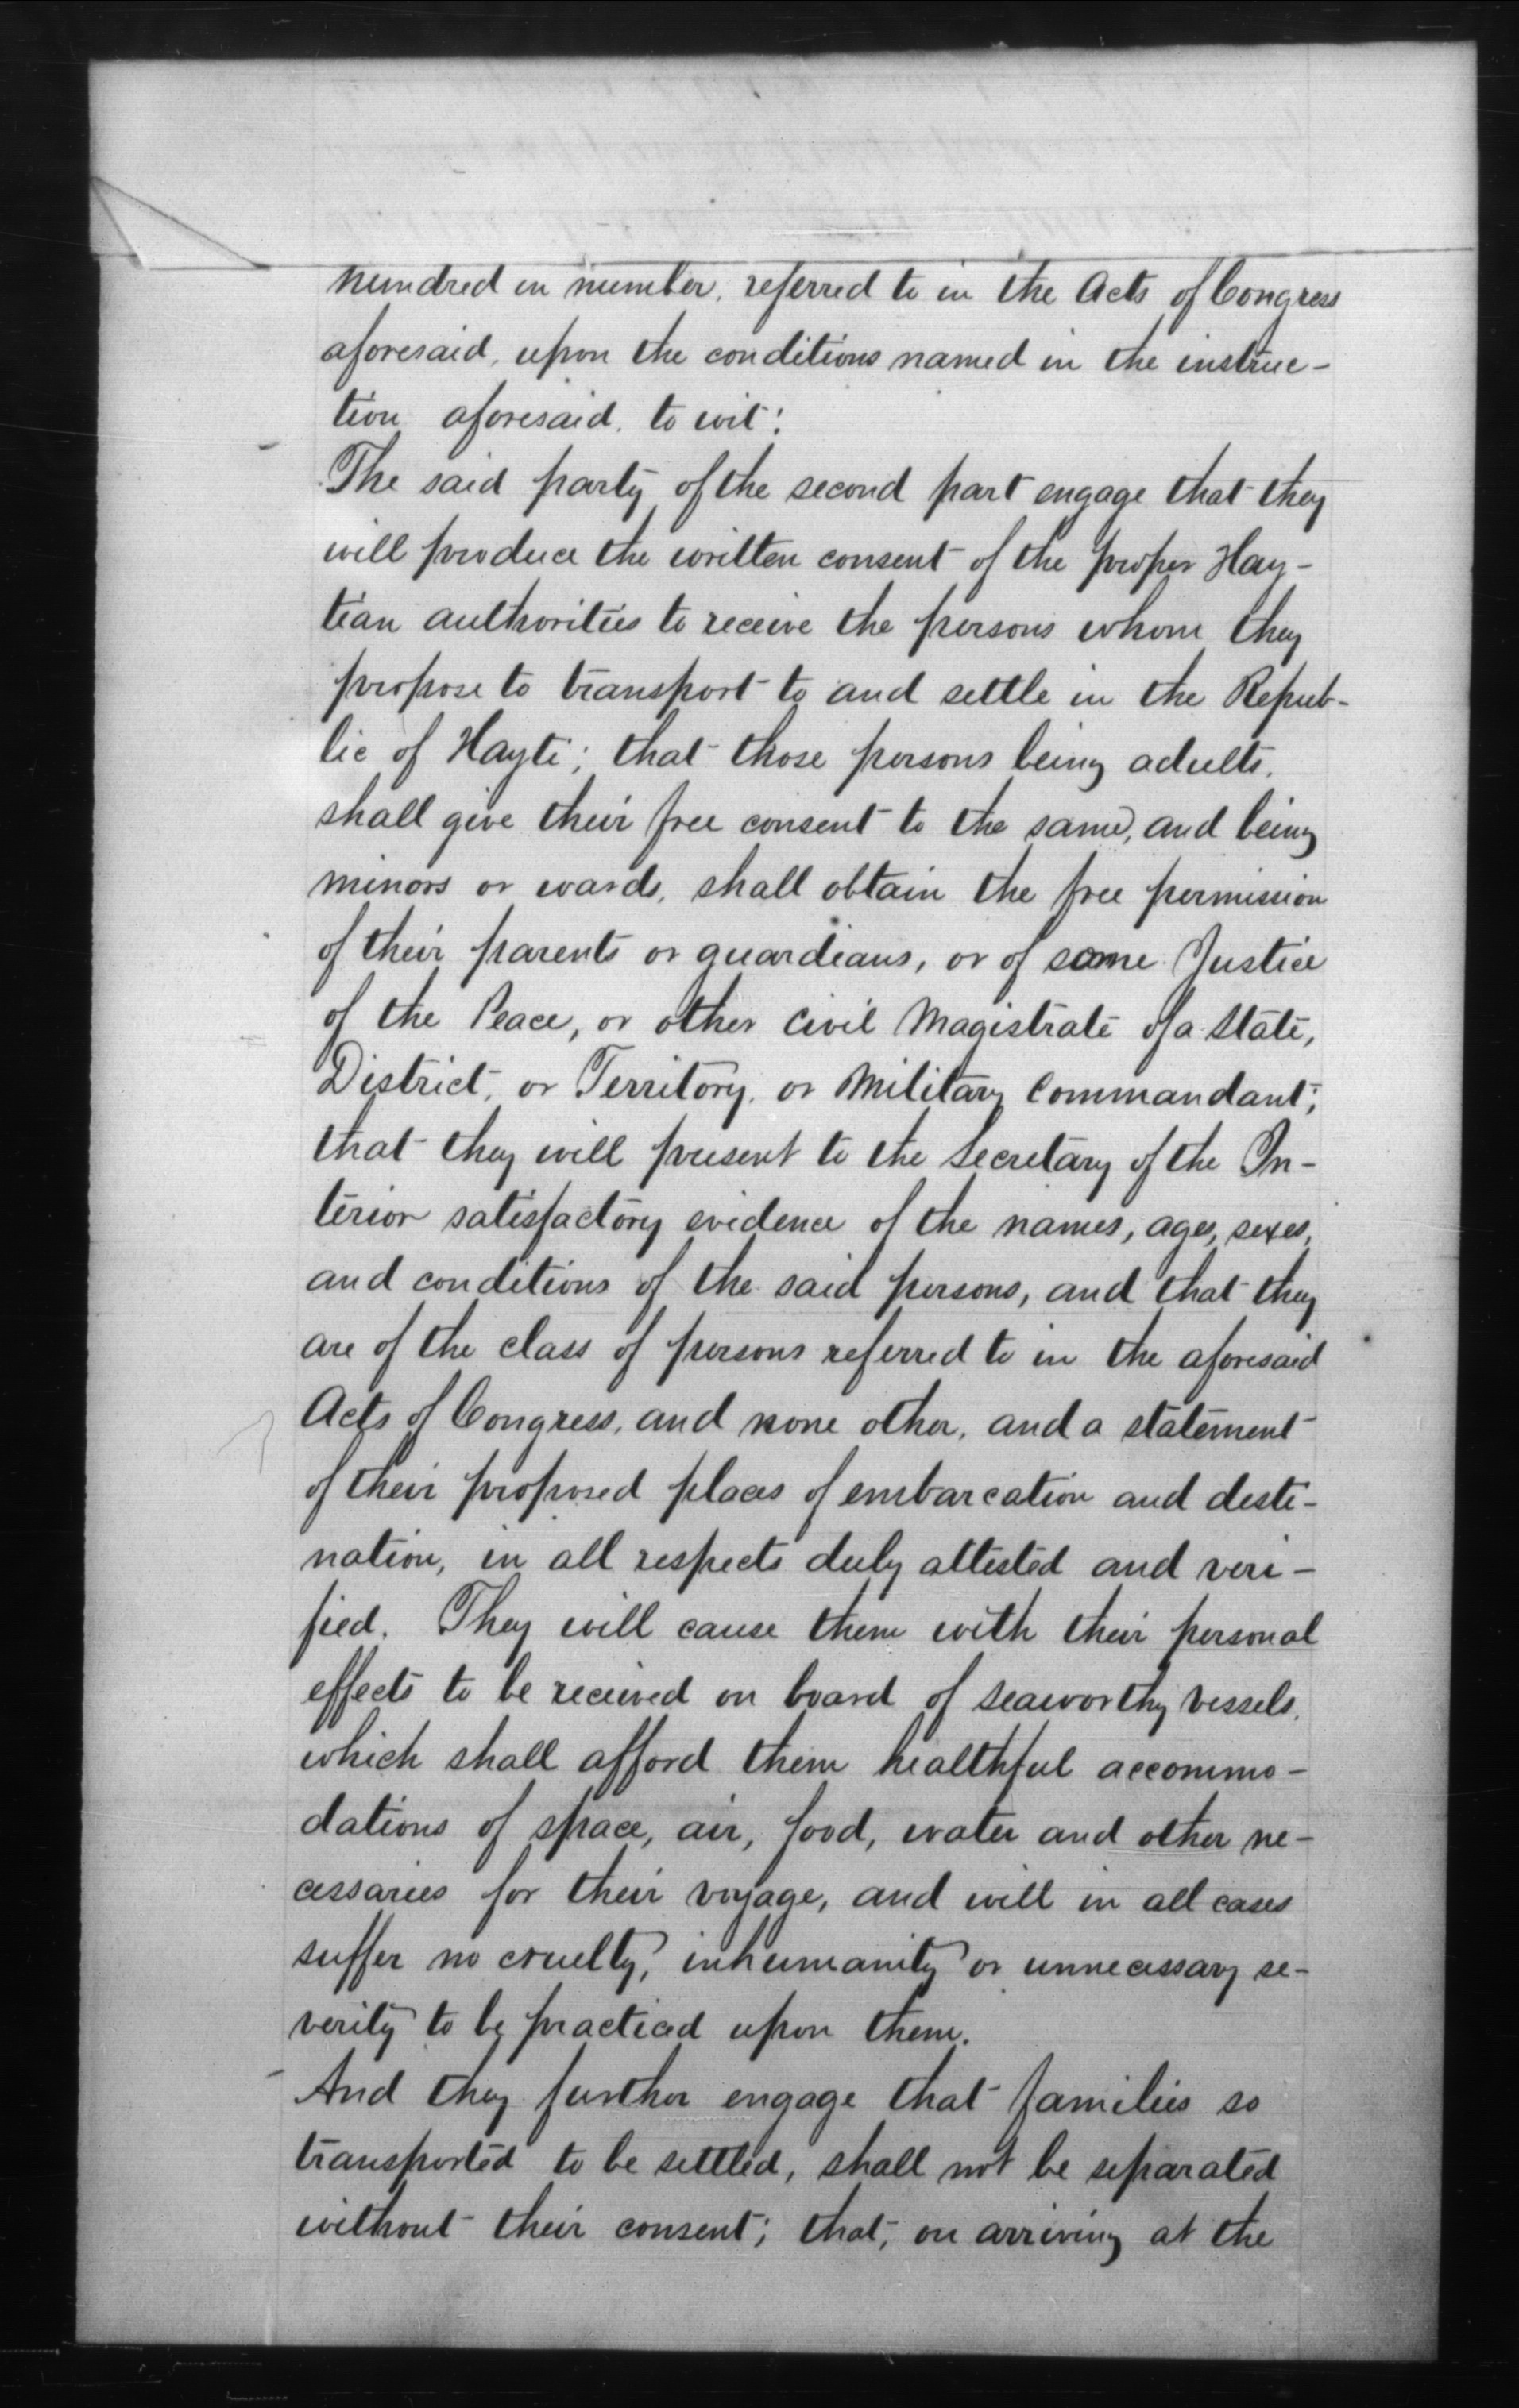 hundred in number, referred to in the Acts of Congress
aforesaid, upon the conditions named in the instruc-
tion aforesaid. to wit:
The said party of the second part engage that they
will produce the written consent of the proper Hay-
tian authorities to receive the persons whom they
propose to transport to and settle in the Repub-
lic of Hayti; that those persons being adults,
shall give their free consent to the same, and being
minors or wards, shall obtain the free permission
of their parents or guardians, or of some Justice
of the Peace, or other civil Magistrate of a State,
District, or Territory, or Military Commandant;
that they will present to the Secretary of the In-
terior satisfactory evidence of the names, ages, sexes,
and conditions of the said persons, and that they
are of the class of persons referred to in the aforesaid
Acts of Congress, and none other, and a statement
of their proposed places of embarcation and desti-
nation, in all respects duly attested and veri-
fied. They will cause them with their personal
effects to be received on board of seaworthy vessels,
which shall afford them healthful accommo-
dations of space, air, food, water and other ne-
cessaries for their voyage, and will in all cases
suffer no cruelty, inhumanity or unnecessary se-
verity to be practiced upon them.
And they further engage that families so
transported to be settled, shall not be separated
without their consent; that, on arriving at the